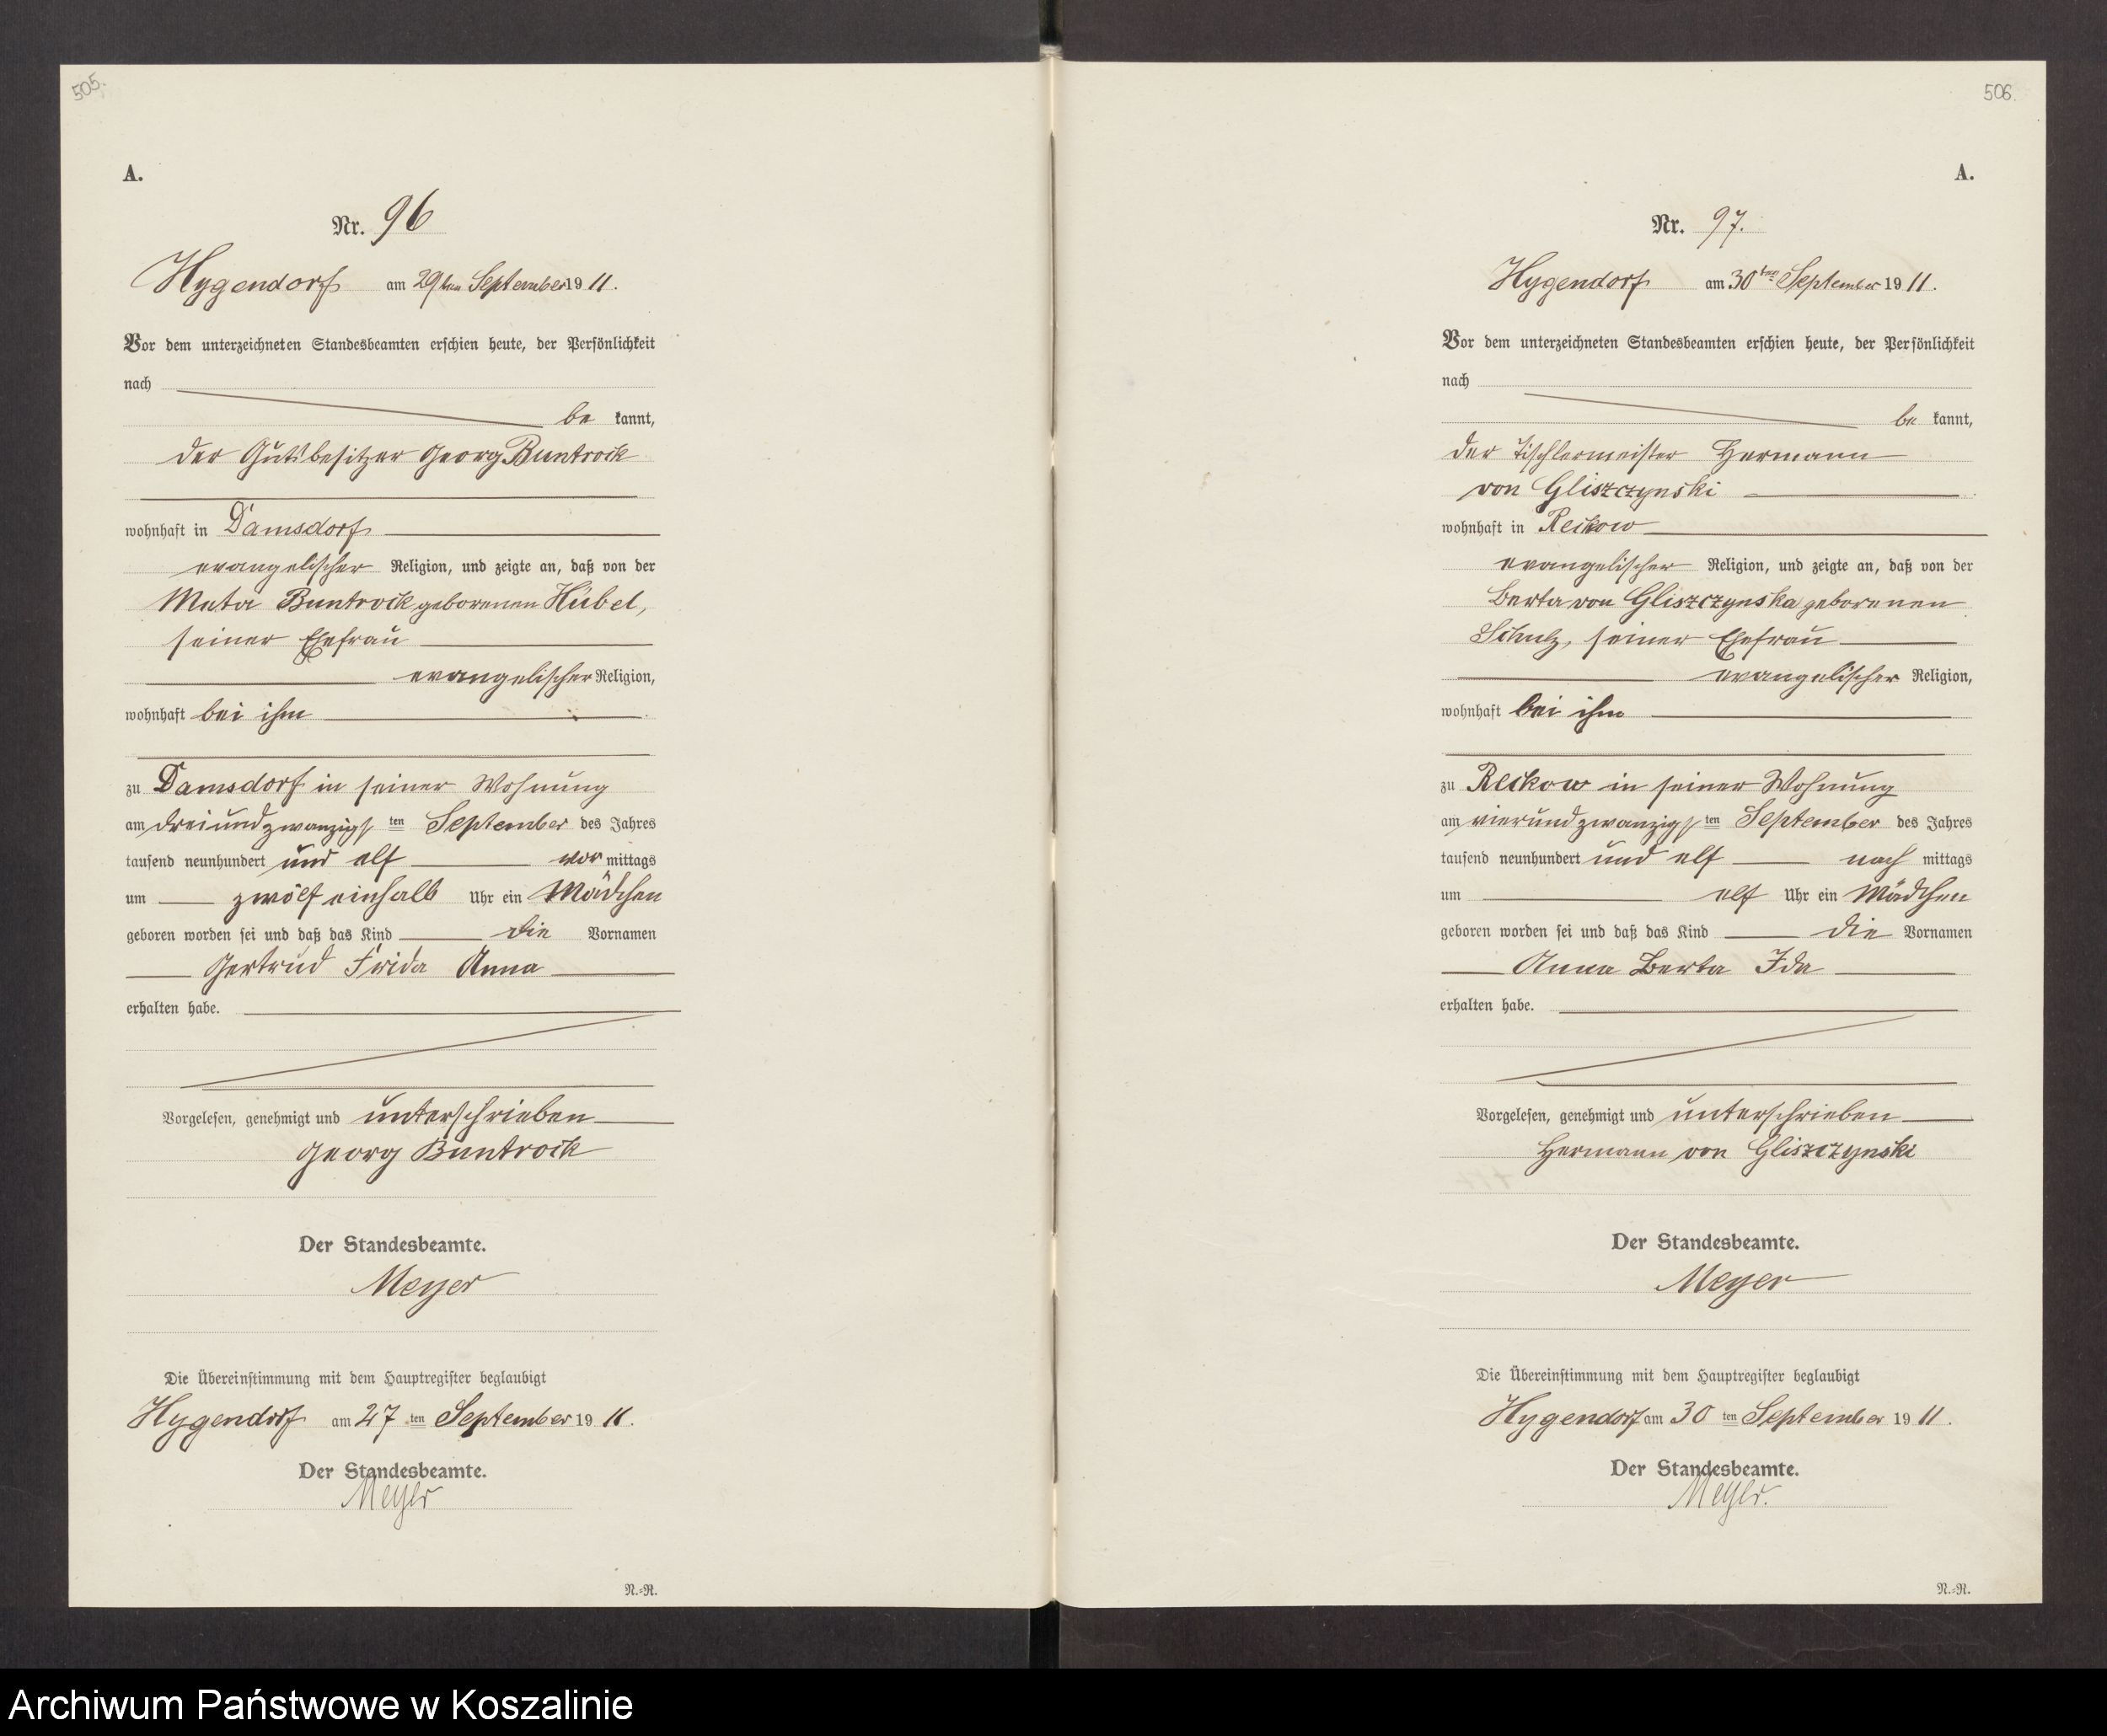 505.
A.
Nr. 96
Hygendorf am 29ten September 1911.
Vor dem unterzeichneten Standesbeamten erschien heute, der Persönlichkeit
nach
be kannt,
der Gutsbesitzer Georg Buntrock
wohnhaft in Damsdorf
evangelischer Religion, und zeigte an, daß von der
Meta Buntrock geborenen Hübel,
seiner Ehefrau
evangelischer Religion,
wohnhaft bei ihm
zu Damsdorf in seiner Wohnung
am dreiundzwanzigsten September des Jahres
tausend neunhundert und elf vormittags
um zwölf einhalb Uhr ein Mädchen
geboren worden sei und daß das Kind die Vornamen
Gertrud Frida Anna
erhalten habe.
Vorgelesen, genehmigt und unterschrieben
Georg Buntrock
Der Standesbeamte.
Meyer
Die Übereinstimmung mit dem Hauptregister beglaubigt
Hygendorf am 27 ten September 1911.
Der Standesbeamte.
Meyer
N.-R.
506.
A.
Nr. 97.
Hygendorf am 30ten September 1911.
Vor dem unterzeichneten Standesbeamten erschien heute, der Persönlichkeit
nach
be kannt,
der Tischlermeister Hermann
von Gliszczynski
wohnhaft in Reckow
evangelischer Religion, und zeigte an, daß von der
Berta von Gliszczynska geborenen
Schulz, seiner Ehefrau
evangelischer Religion,
wohnhaft bei ihm
zu Reckow in seiner Wohnung
am vierundzwanzigsten September des Jahres
tausend neunhundert und elf nach mittags
um elf Uhr ein Mädchen
geboren worden sei und daß das Kind die Vornamen
Anna Berta Ida
erhalten habe.
Vorgelesen, genehmigt und unterschrieben
Hermann von Gliszczynski
Der Standesbeamte.
Meyer
Die Übereinstimmung mit dem Hauptregister beglaubigt
Hygendorf am 30 ten September 1911.
Der Standesbeamte.
Meyer.
N.-R.
Archiwum Państwowe w Koszalinie